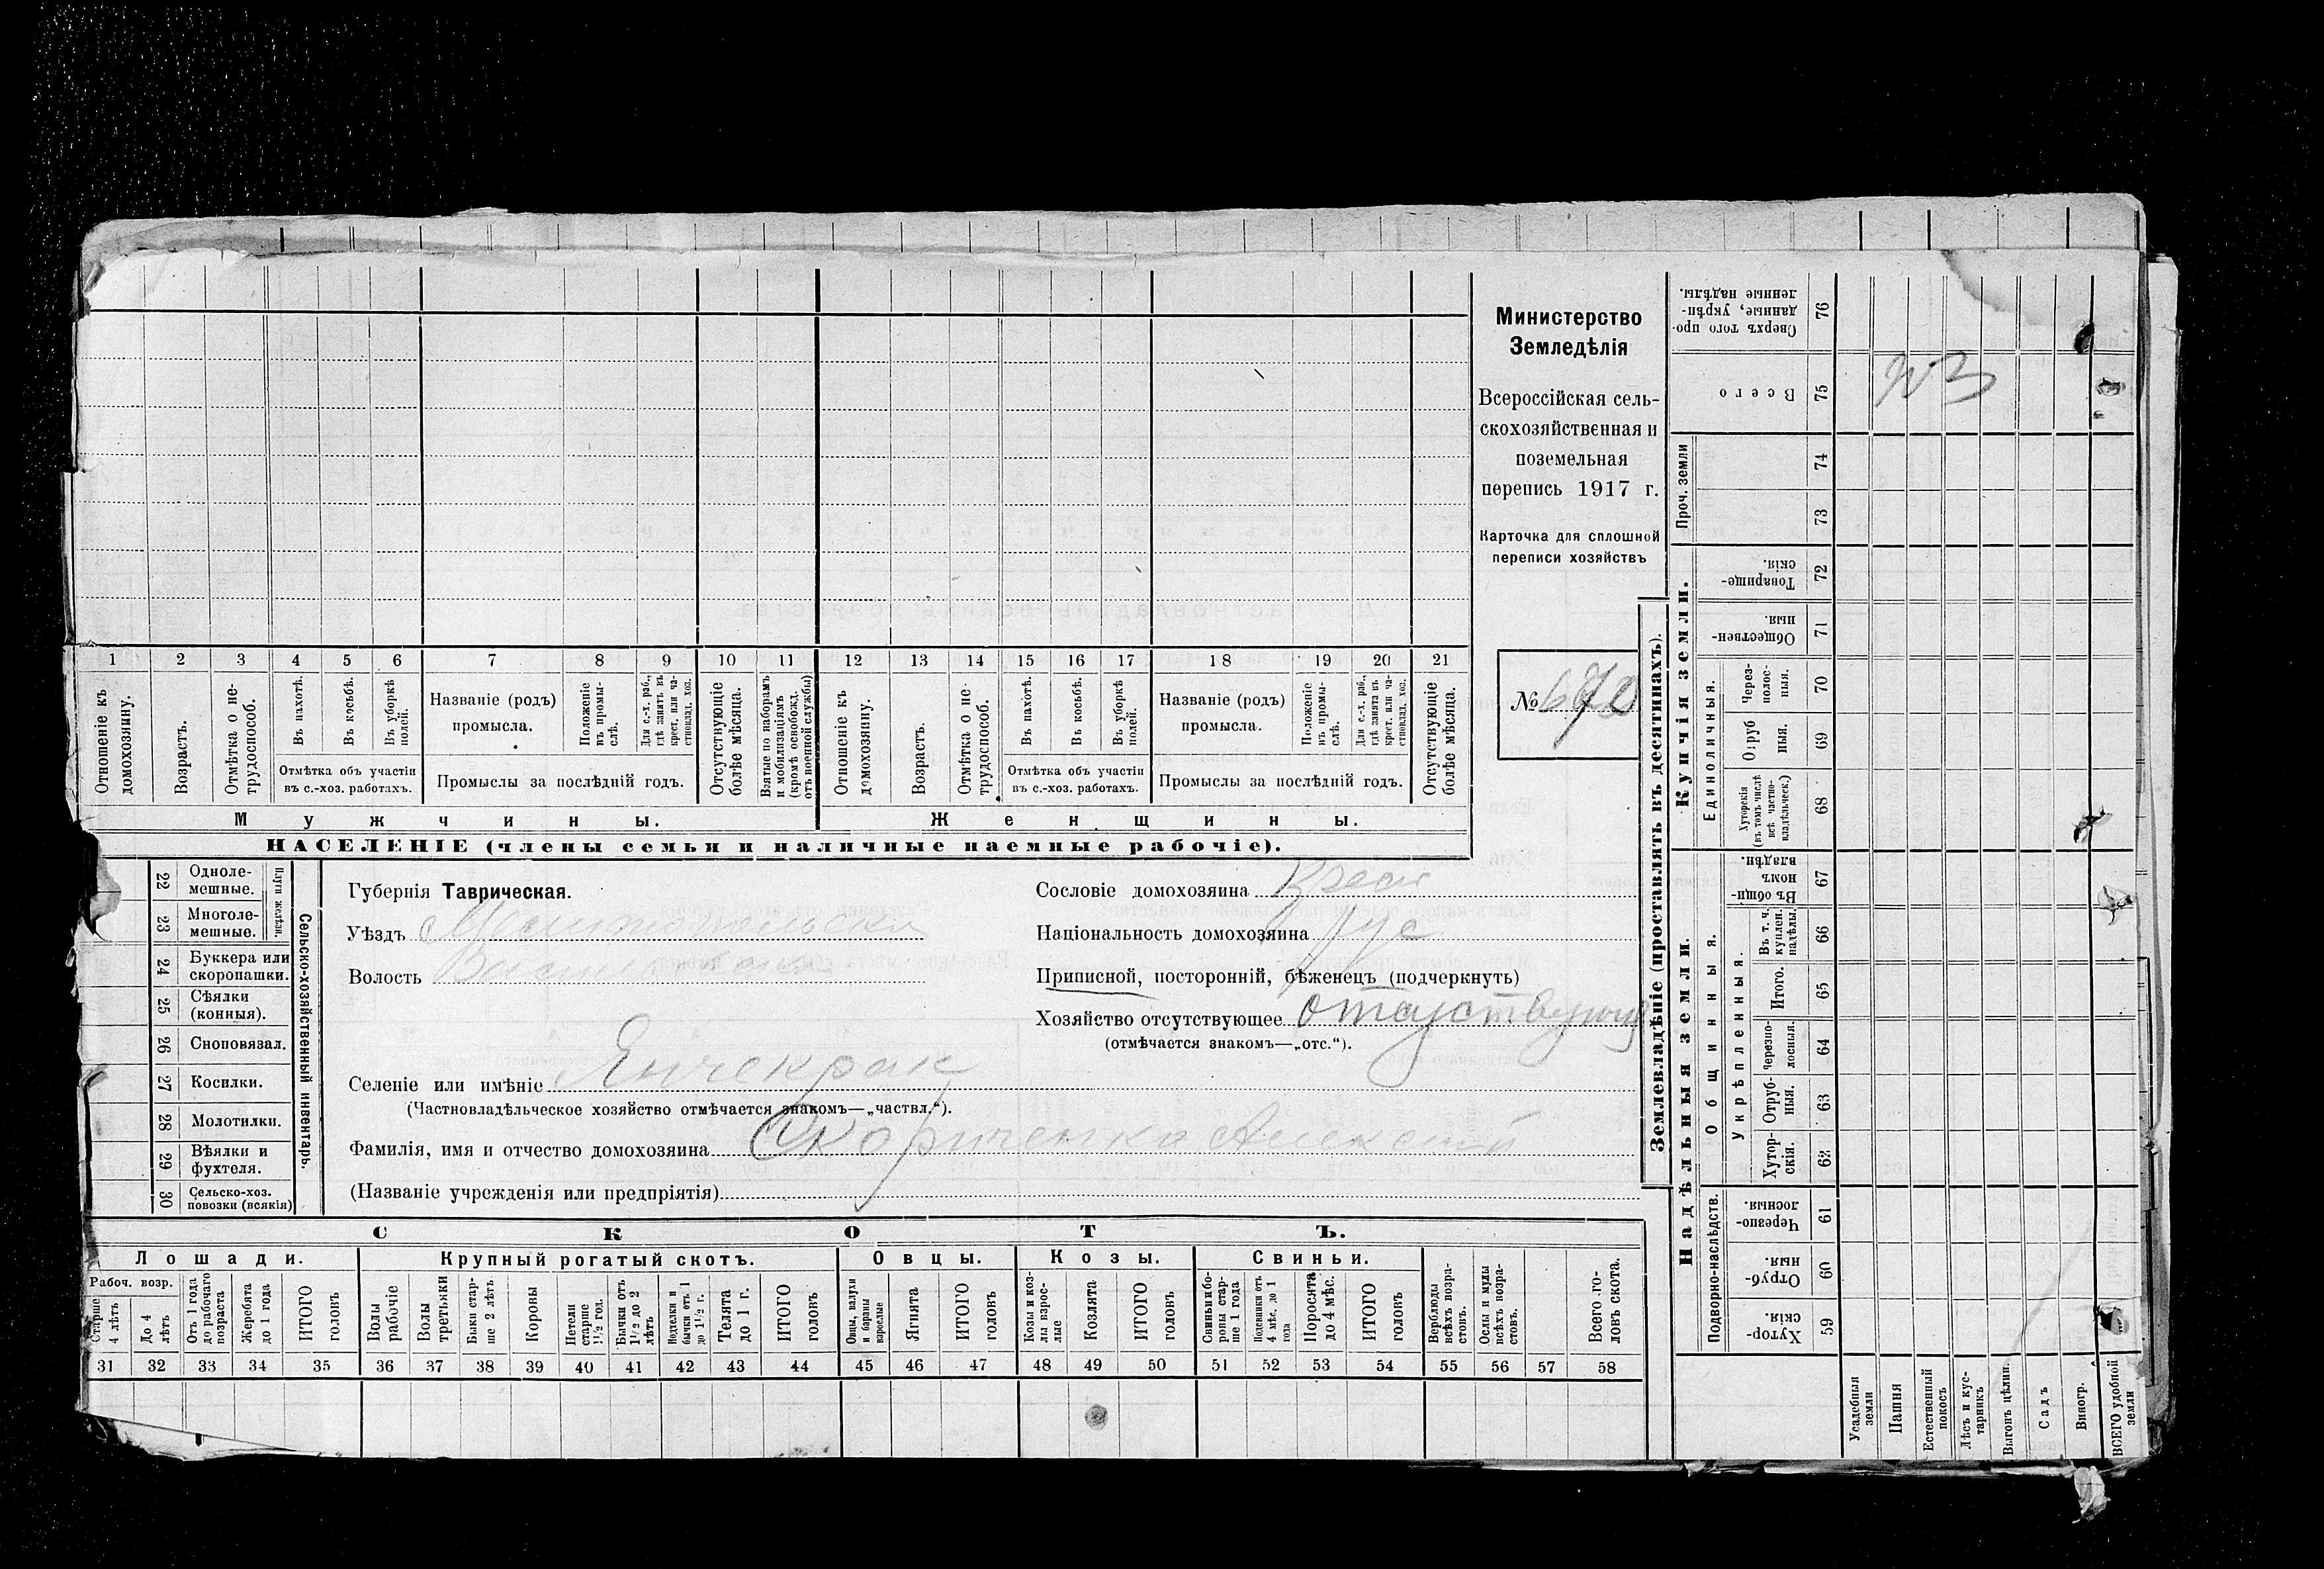 Министерство
Земледѣлія
Всероссійская сель-
скохозяйственная и
поземельная
перепись 1917 г.
Карточка для сплошной
переписи хозяйствъ
№
1 2 3 4 5 6 7 8 9 10 11 12 13 14 15 16 17 18 19 20 21
Отношеніе къ домохозяину.
Возрастъ.
Отмѣтка о не-трудоспособ.
Въ пахотѣ.
Въ косьбѣ.
Въ уборкѣ полей.
Отмѣтка объ участіи
въ с.-хоз. работахъ.
Названіе (родъ)
промысла.
Положеніе въ промы-слѣ.
Для с.-х. раб., гдѣ занятъ въ крест. или ча-стновлад. хоз.
Промыслы за послѣдній годъ.
Отсутствующіе болѣе мѣсяца.
Взятые по наборамъ и мобилизаціямъ (кромѣ освобожд. отъ военной службы)
Отношеніе къ домохозяину.
Возрастъ.
Отмѣтка о не-трудоспособ.
Въ пахотѣ.
Въ косьбѣ.
Въ уборкѣ полей.
Отмѣтка объ участіи
въ с.-хоз. работахъ.
Названіе (родъ)
промысла.
Положеніе въ промы-слѣ.
Для с.-х. раб., гдѣ занята въ крест. или ча-стновлад. хоз.
Промыслы за послѣдній годъ.
Отсутствующіе болѣе мѣсяца.
Мужчины.
Женщины.
НАСЕЛЕНІЕ (члены семьи и наличные наемные рабочіе).
Сельско-хозяйственный инвентарь.
Плуги желѣзн.
22 Одноле-мешные.
23 Многоле-мешные.
24 Буккера или скоропашки.
25 Сѣялки (конныя).
26 Сноповязал.
27 Косилки.
28 Молотилки.
29 Вѣялки и фухтеля.
30 Сельско-хоз. повозки (всякія)
Губернія Таврическая.
Уѣздъ Мелитопольскій
Волость Васильевская
Селеніе или имѣніе Янчекрак
(Частновладѣльческое хозяйство отмѣчается знакомъ—„частвл.“).
Фамилія, имя и отчество домохозяина Скориченко Алексей
(Названіе учрежденія или предпріятія)
Сословіе домохозяина Крест
Національность домохозяина Рус
Приписной, посторонній, бѣженецъ (подчеркнуть)
Хозяйство отсутствующее отсутствующ
(отмѣчается знакомъ—„отс.“).
СКОТЪ.
Лошади.
Крупный рогатый скотъ.
Овцы.
Козы.
Свиньи.
Рабоч. возр.
Старше 4 лѣтъ
До 4 лѣтъ
Отъ 1 года до рабочаго возраста
Жеребята до 1 года
ИТОГО головъ
Волы рабочіе
Волы третьяки
Быки стар-ше 2 лѣтъ
Коровы
Нетели старше 1½ год.
Бычки отъ 1½ до 2 лѣтъ
Подтелки и бычки отъ 1 до 1½ г.
Телята до 1 г.
ИТОГО головъ
Овцы, валухи и бараны взрослые
Ягнята
ИТОГО головъ
Козы и коз-лы взрос-лые
Козлята
ИТОГО головъ
Свиньи и бо-ровы стар-ше 1 года
Подсвинки отъ 4 мѣс. до 1 года
Поросята до 4 мѣс.
ИТОГО головъ
Верблюды всѣхъ возра-стовъ.
Ослы и мулы всѣхъ возра-стовъ.
Всего го-ловъ скота.
31 32 33 34 35 36 37 38 39 40 41 42 43 44 45 46 47 48 49 50 51 52 53 54 55 56 57 58
Землевладѣніе (проставлять въ десятинахъ).
Надѣльныя земли.
Купчія земли.
Проч. земли
Подворно-наслѣдств.
Общинныя.
Укрѣпленныя.
Единоличныя.
Хутор-скія. 59
Отруб-ныя. 60
Черезпо-лосныя. 61
Хутор-скія. 62
Отруб-ныя. 63
Черезпо-лосныя. 64
Итого. 65
Въ т. ч. куплен. надѣлы. 66
Въ общин-номъ владѣн. 67
Хуторскія (въ томъ числѣ всѣ частно-владѣльческ.) 68
Отруб-ныя. 69
Через-полос-ныя. 70
Обществен-ныя. 71
Товарище-скія. 72
73
74
Всего 75
Сверхъ того про-данные, укрѣп-ленные надѣлы. 76
Усадебныя земли
Пашня
Естественный покосъ
Лѣсъ и кус-тарникъ
Выгонъ цѣлин.
Садъ
Виногр.
ВСЕГО удобной земли